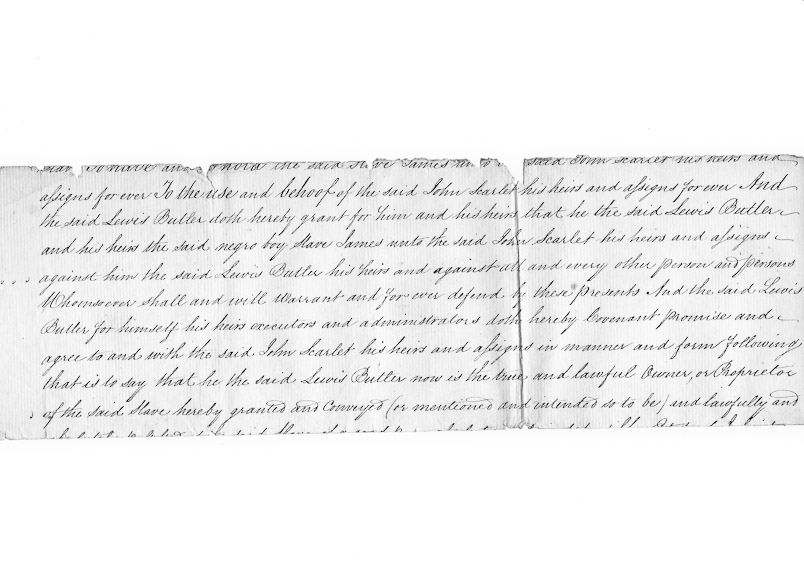 Slave To have and to hold the said Slave James unto the said John Scarlet his heirs and
assigns for ever To the use and behoof of the said John Scarlet his heirs and assigns for ever And
the said Lewis Butler doth hereby grant for him and his heirs that he the said Lewis Butler
and his heirs the said negro boy Slave James unto the said John Scarlet his heirs and assigns
against him the said Lewis Butler his heirs and against all and every other person and persons
Whomsoever shall and will Warrant and for ever defend by these presents And the said Lewis
Butler for himself his heirs executors and administrators doth hereby Covenant promise and
agree to and with the said John Scarlet his heirs and assigns in manner and form following
that is to say that he the said Lewis Butler now is the true and lawful Owner, or Proprietor
of the said Slave hereby granted and Conveyed (or mentioned and intended so to be) and lawfully and